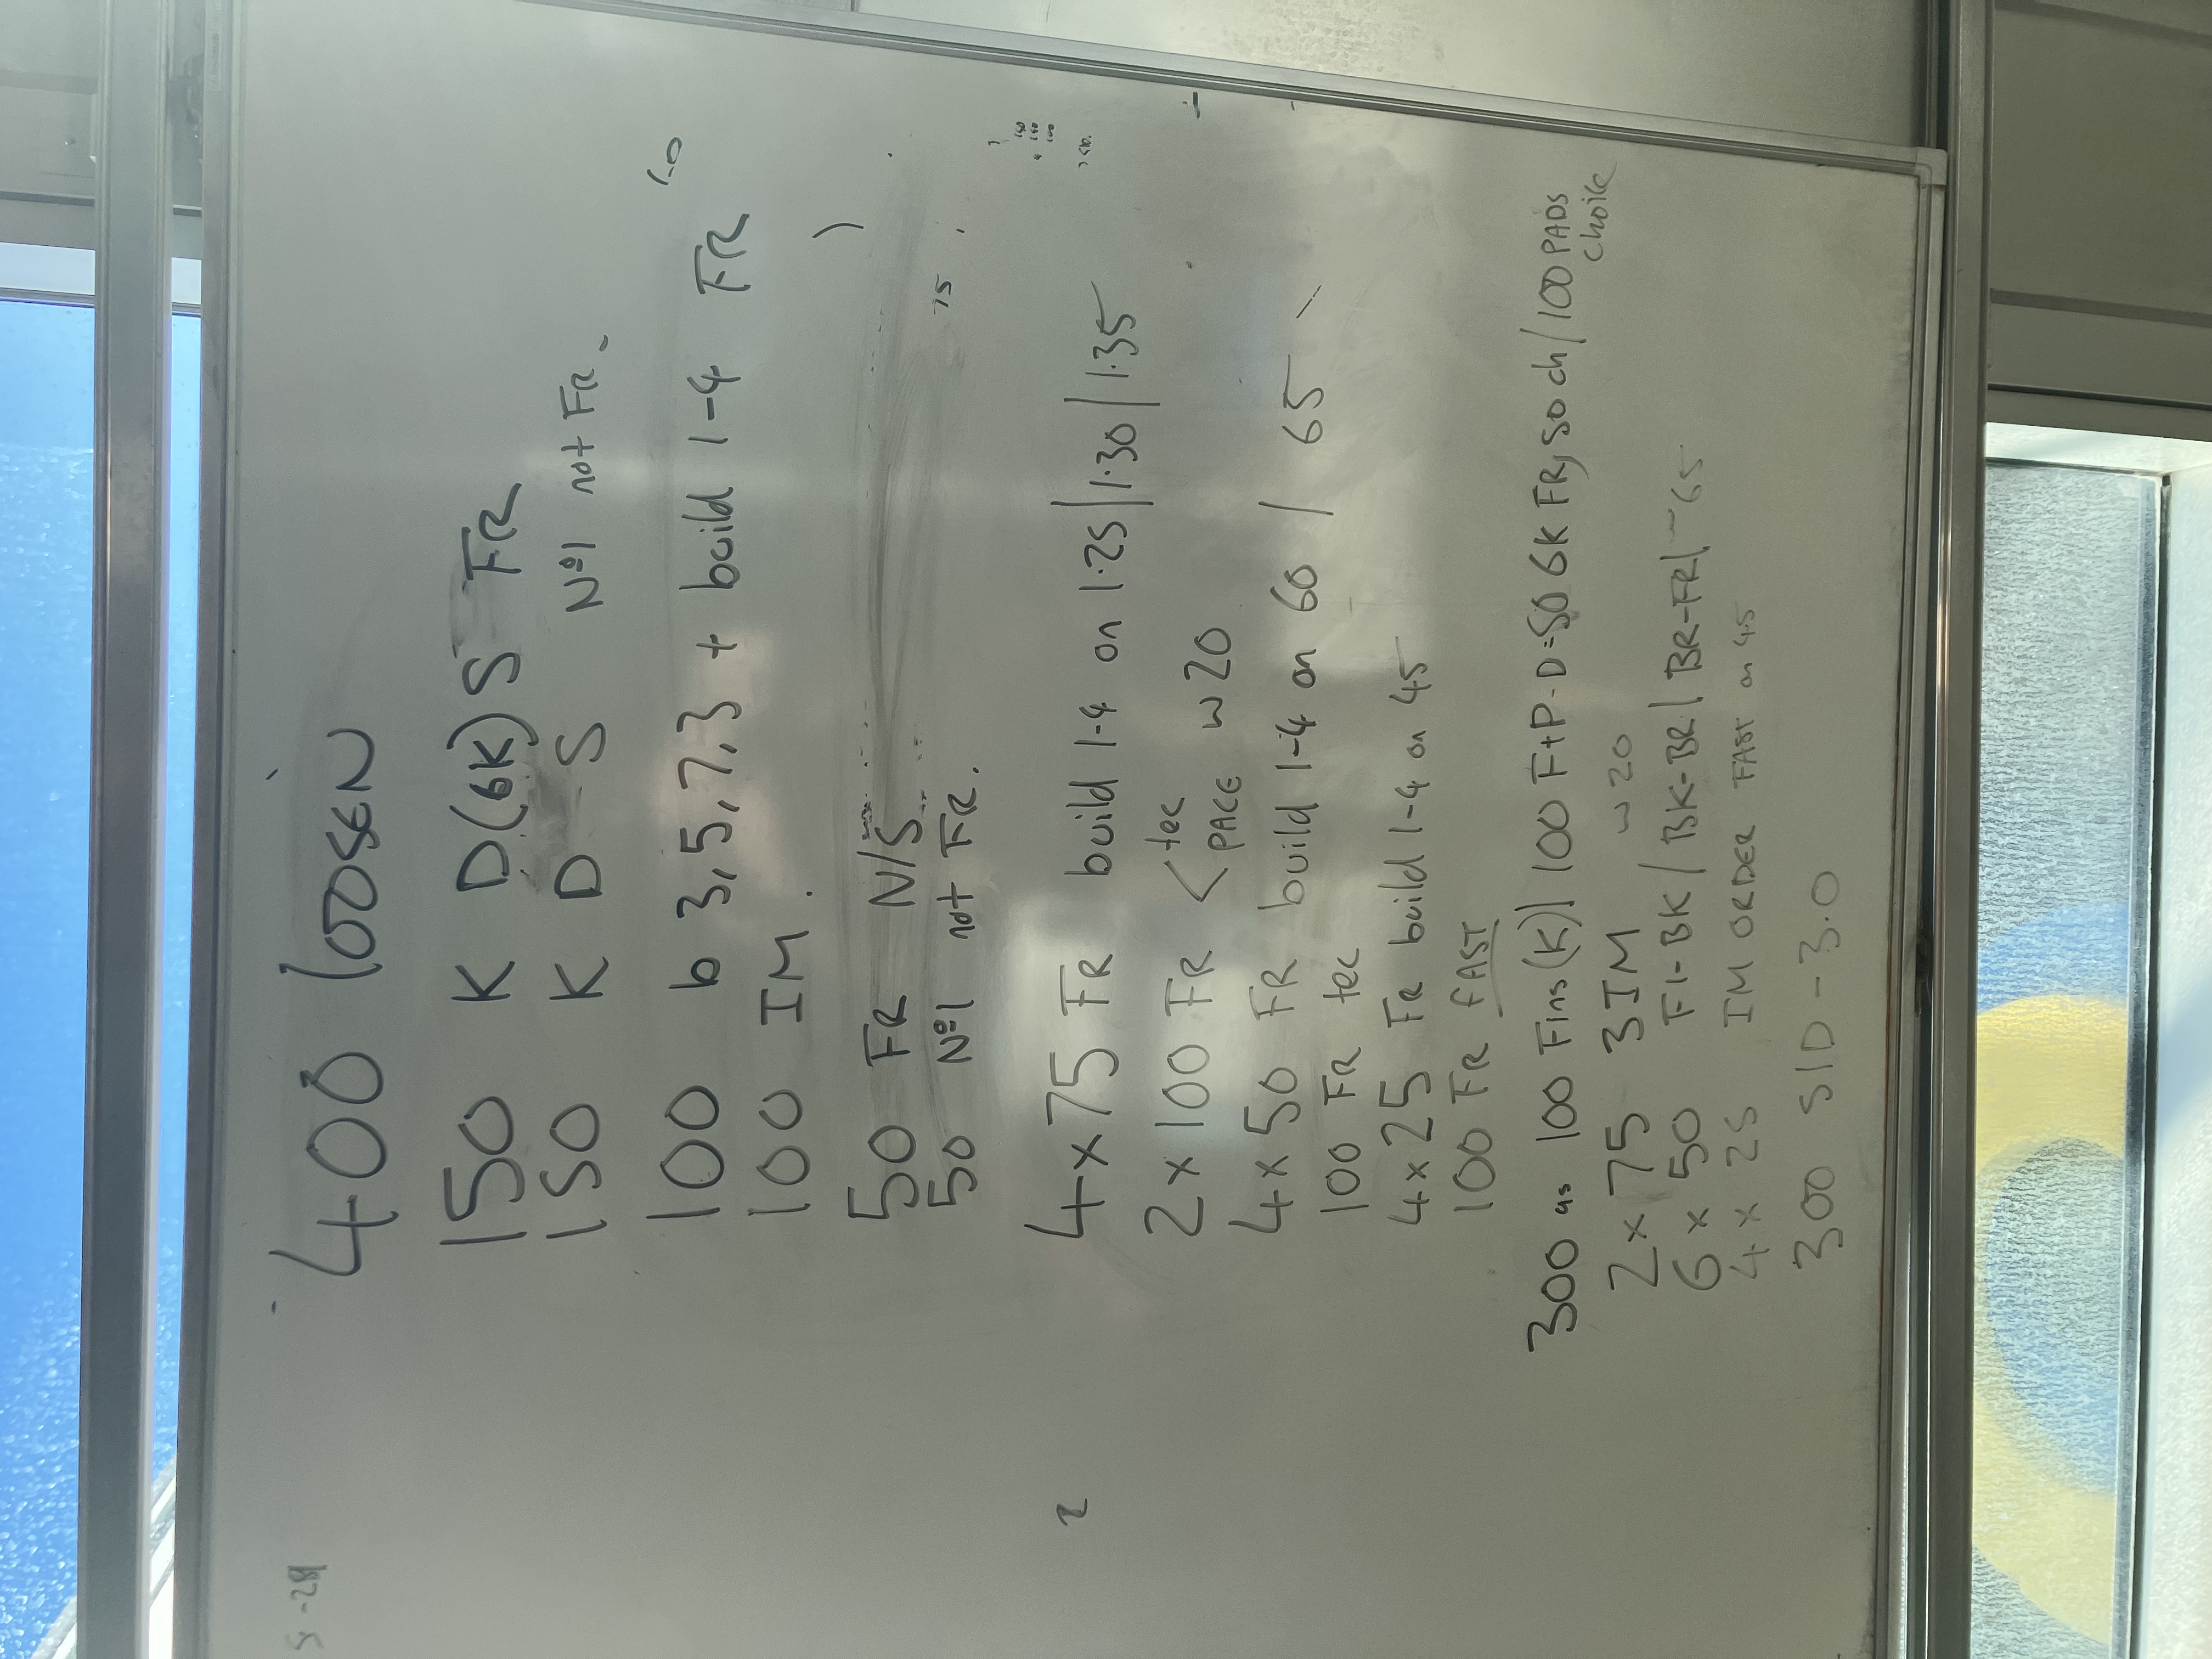 400 loosen
150 K D(6K) S FR
150 K D S Nº1 not FR.
100 b 3,5,7,3 + build 1-4 FR
100 IM.
50 FR N/S
50 Nº1 not FR.
75
4x75 FR build 1-4 on 1.25 | 1.30 | 1.35
2x100 FR < tec
PACE w20
4x50 FR build 1-4 on 60 / 65
100 FR tec
4x25 FR build 1-4 on 45
100 FR FAST
300 as 100 Fins(K) | 100 F+P-D=50 6K FR, 50 ch / 100 PADS
choice
2x75 3IM w20
6x50 Fl-BK / BK-BR / BR-FR / ~65
4x25 IM ORDER FAST on 45
300 S/D - 3.0